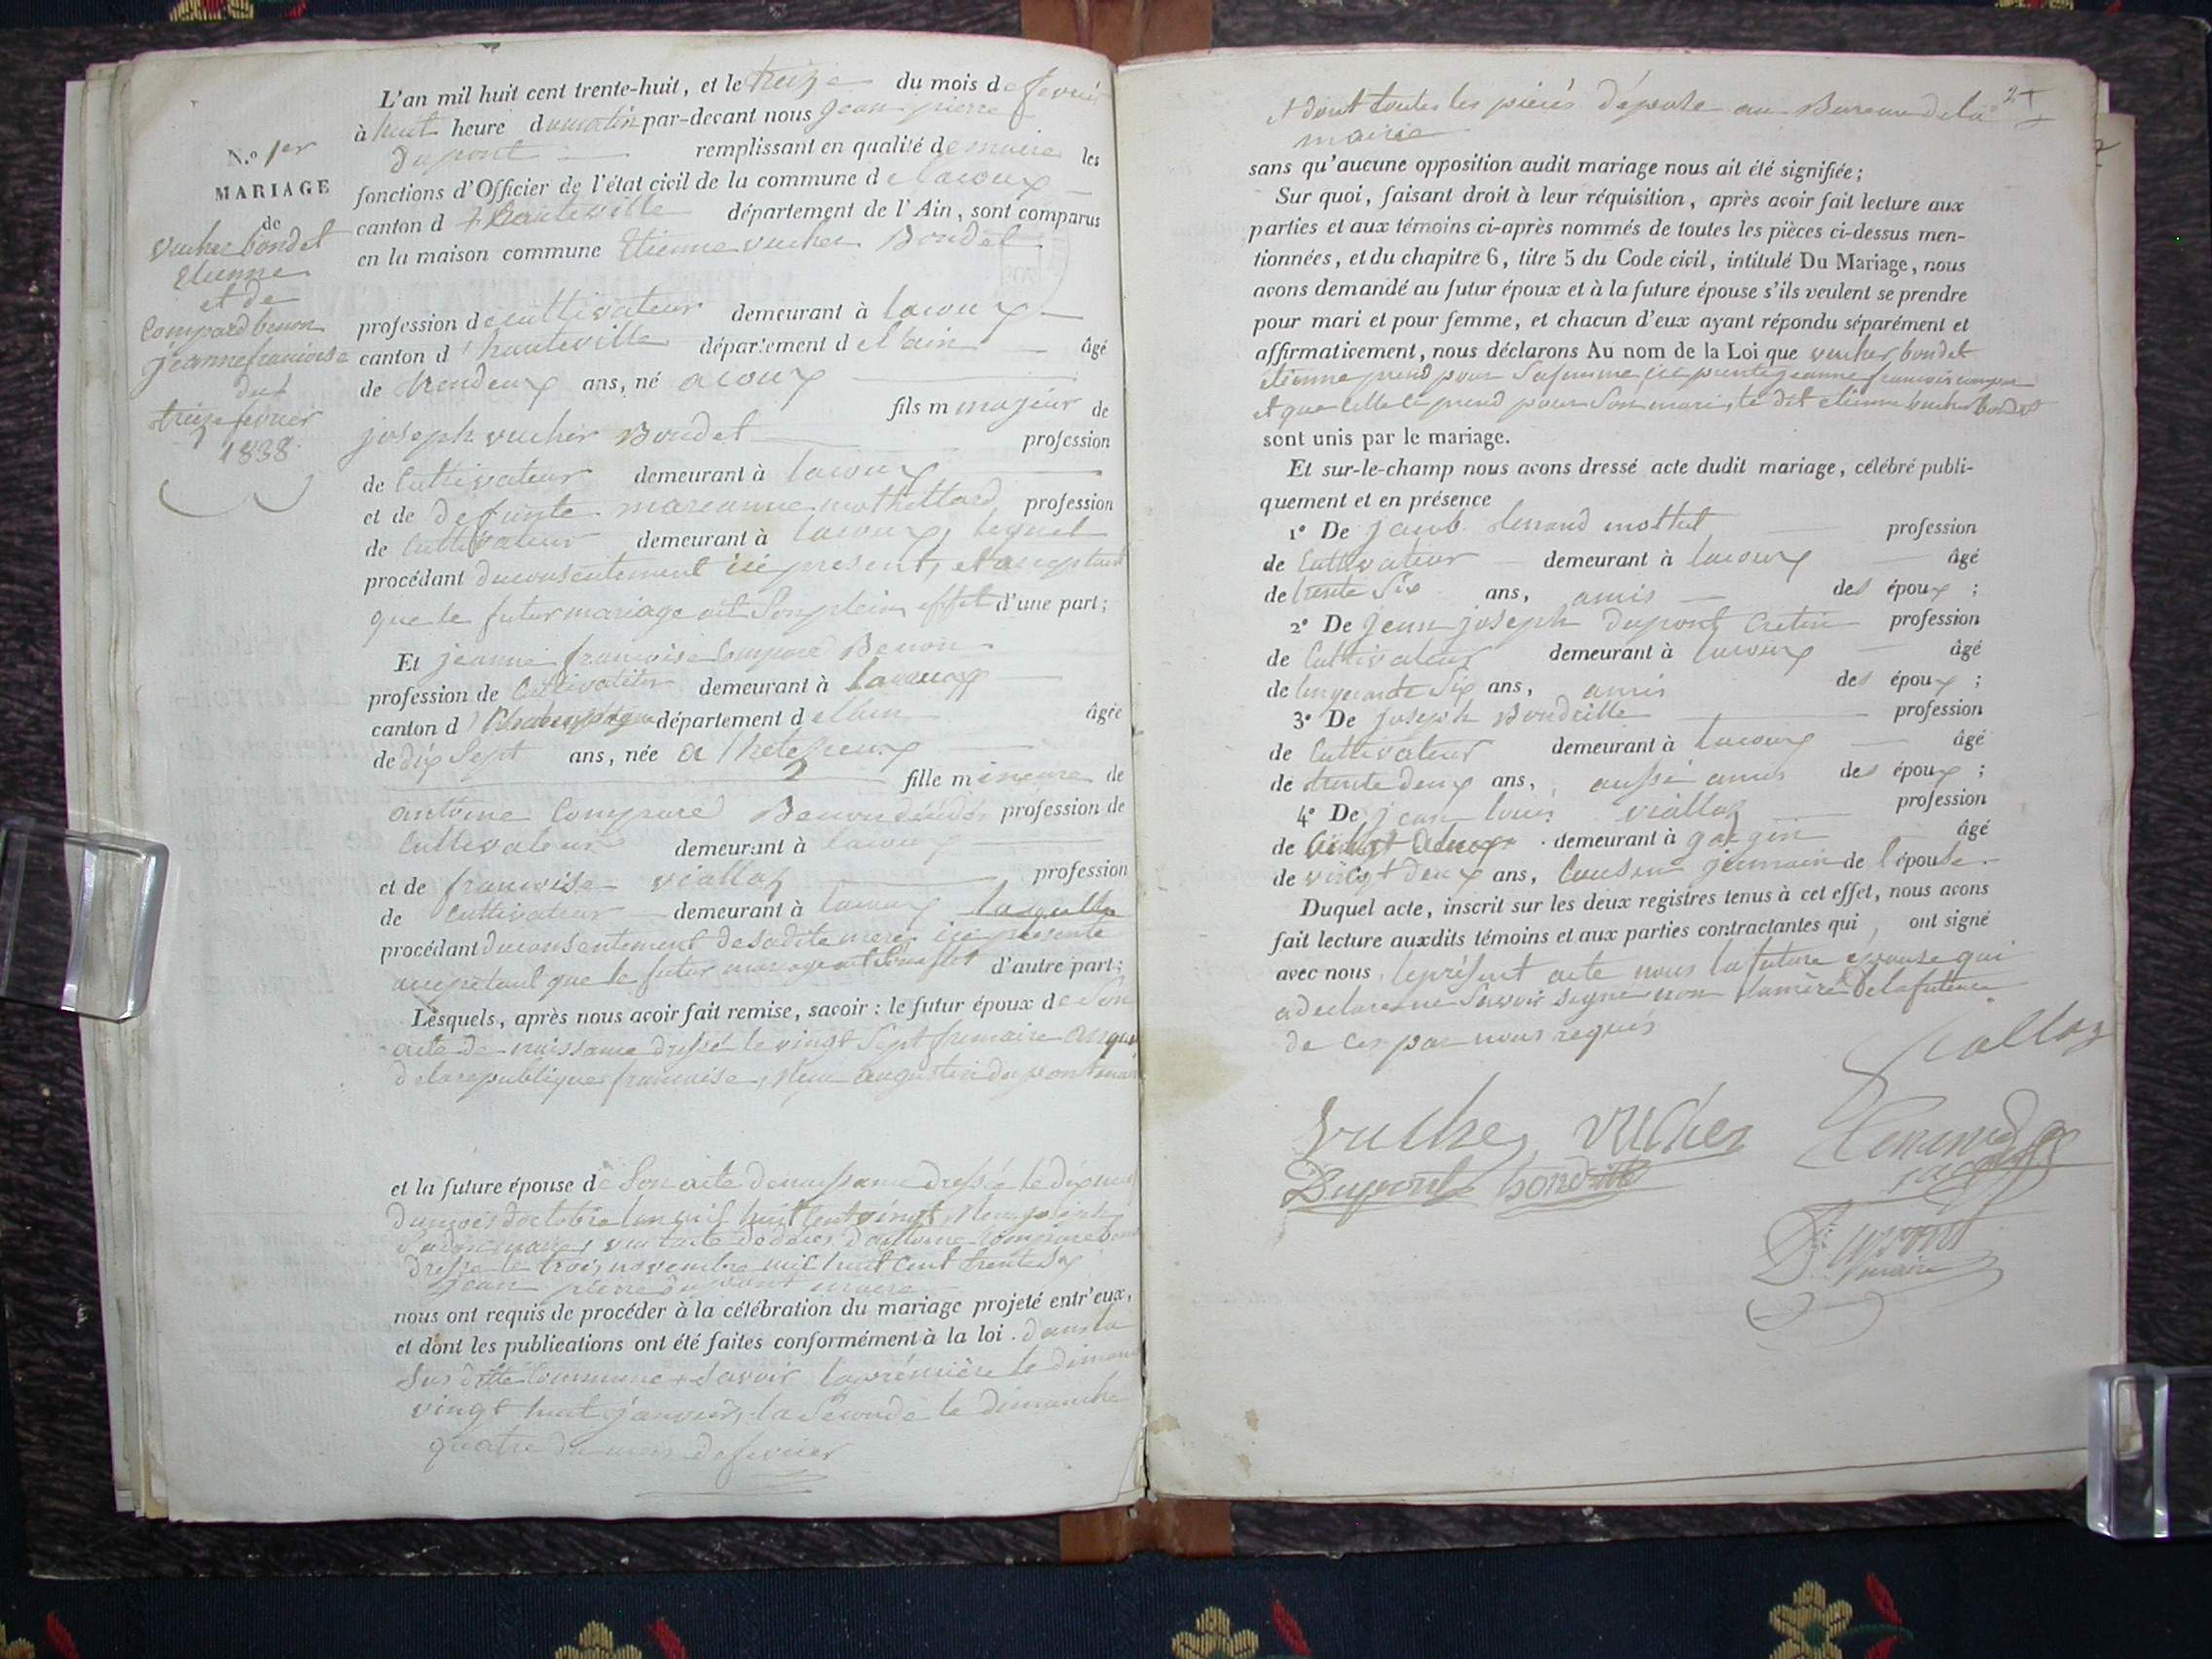 N.o 1er
MARIAGE
de
vucher bondet
etienne
et de
Compard benon
jeanne francoise
du
treize fevrier
1838
L'an mil huit cent trente-huit, et le treize du mois de fevrier
à huit heure du matin par-devant nous jean pierre
dupont remplissant en qualité de maire les
fonctions d'Officier de l'état civil de la commune de lacoux
canton d'hauteville département de l'Ain, sont comparus
en la maison commune Etienne vucher Bondet
profession de cultivateur demeurant à lacoux
canton d'hauteville département de l'ain âgé
de trendeux ans, né a coux
fils m majeur de
joseph vucher Bondet profession
de Cultivateur demeurant à lacoux
et de defunte marianne mothellard profession
de Cultivateur demeurant à lacoux, lequel
procédant du consentement ici present, et acceptant
que le futur mariage ait Son plein effet d'une part;
Et jeanne francoise Compard Benon
profession de Cultivateur demeurant à lacoux
canton d département de l'ain âgée
de dix Sept ans, née a
fille mineure de
antoine Compard Benon profession de
Cultivateur demeurant à lacoux
et de francoise viallaz profession
de Cultivateur demeurant à lacoux laquelle
procédant du consentement de sadite mere ici presente
acceptant que le futur mariage ait Son effet d'autre part;
Lesquels, après nous avoir fait remise, savoir: le futur époux de Son
acte de naissance dressé le vingt Sept frimaire an
de la republique francaise, augustin dupont
et la future épouse de Son acte de naissance dressé le dix neuf
du mois doctobre lan mil huit cent vingt
maire, acte de deces d'antoine Compard
dressé le trois novembre mil huit cent trente Six
jean pierre dupont maire
nous ont requis de procéder à la célébration du mariage projeté entr'eux,
et dont les publications ont été faites conformément à la loi. dans la
Sus dite Commune Savoir la première le dimanche
vingt huit janvier, la Seconde le dimanche
quatre du mois de fevrier
2
et dont toutes les pieces déposée au Bureau de la
mairie
sans qu'aucune opposition audit mariage nous ait été signifiée;
Sur quoi, faisant droit à leur réquisition, après avoir fait lecture aux
parties et aux témoins ci-après nommés de toutes les pièces ci-dessus men-
tionnées, et du chapitre 6, titre 5 du Code civil, intitulé Du Mariage, nous
avons demandé au futur époux et à la future épouse s'ils veulent se prendre
pour mari et pour femme, et chacun d'eux ayant répondu séparément et
affirmativement, nous déclarons Au nom de la Loi que vucher bondet
etienne prend pour Safemme ici presente jeanne francoise compard
et que Celle ci prend pour Son mari, le dit etienne vucher bondet
sont unis par le mariage.
Et sur-le-champ nous avons dressé acte dudit mariage, célébré publi-
quement et en présence
1° De jacob mottet profession
de Cultivateur demeurant à lacoux âgé
de trente Six ans, amis des époux;
2° De jean joseph dupont Cretin profession
de Cultivateur demeurant à lacoux âgé
de Cinquante Six ans, amis des époux;
3° De joseph Bondrille profession
de Cultivateur demeurant à lacoux âgé
de trente deux ans, aussi amis des époux;
4° De jean louis viallaz profession
de demeurant à âgé
de vingt deux ans, Cousin jermain de l'épouse.
Duquel acte, inscrit sur les deux registres tenus à cet effet, nous avons
fait lecture auxdits témoins et aux parties contractantes qui ont signé
avec nous, le présent acte nous la future épouse qui
a declare ne Savoir signer non la mère de la future
de Ces par nous requis
viallaz
vucher vucher
Dupont bondrille
Dupont
maire